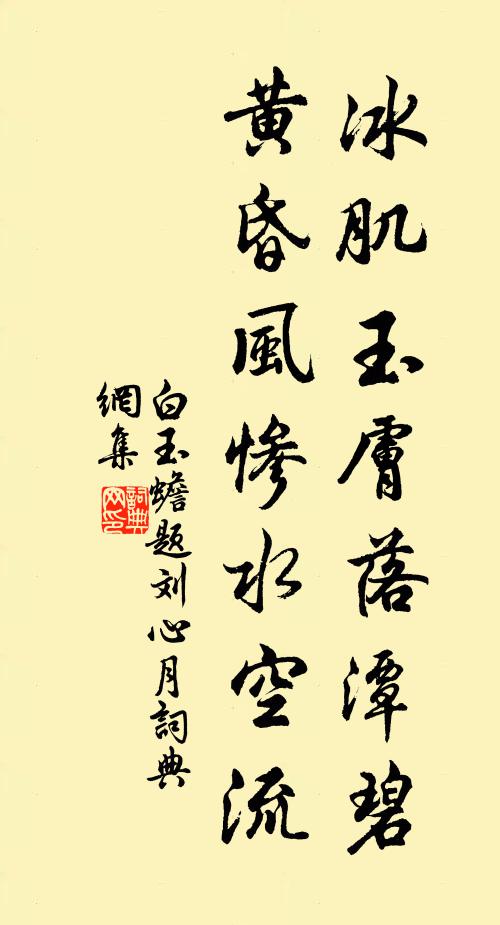 冰肌玉膚落潭碧
黃昏風慘水空流
白玉蟾題刘心月詞典
網集
詞典网印